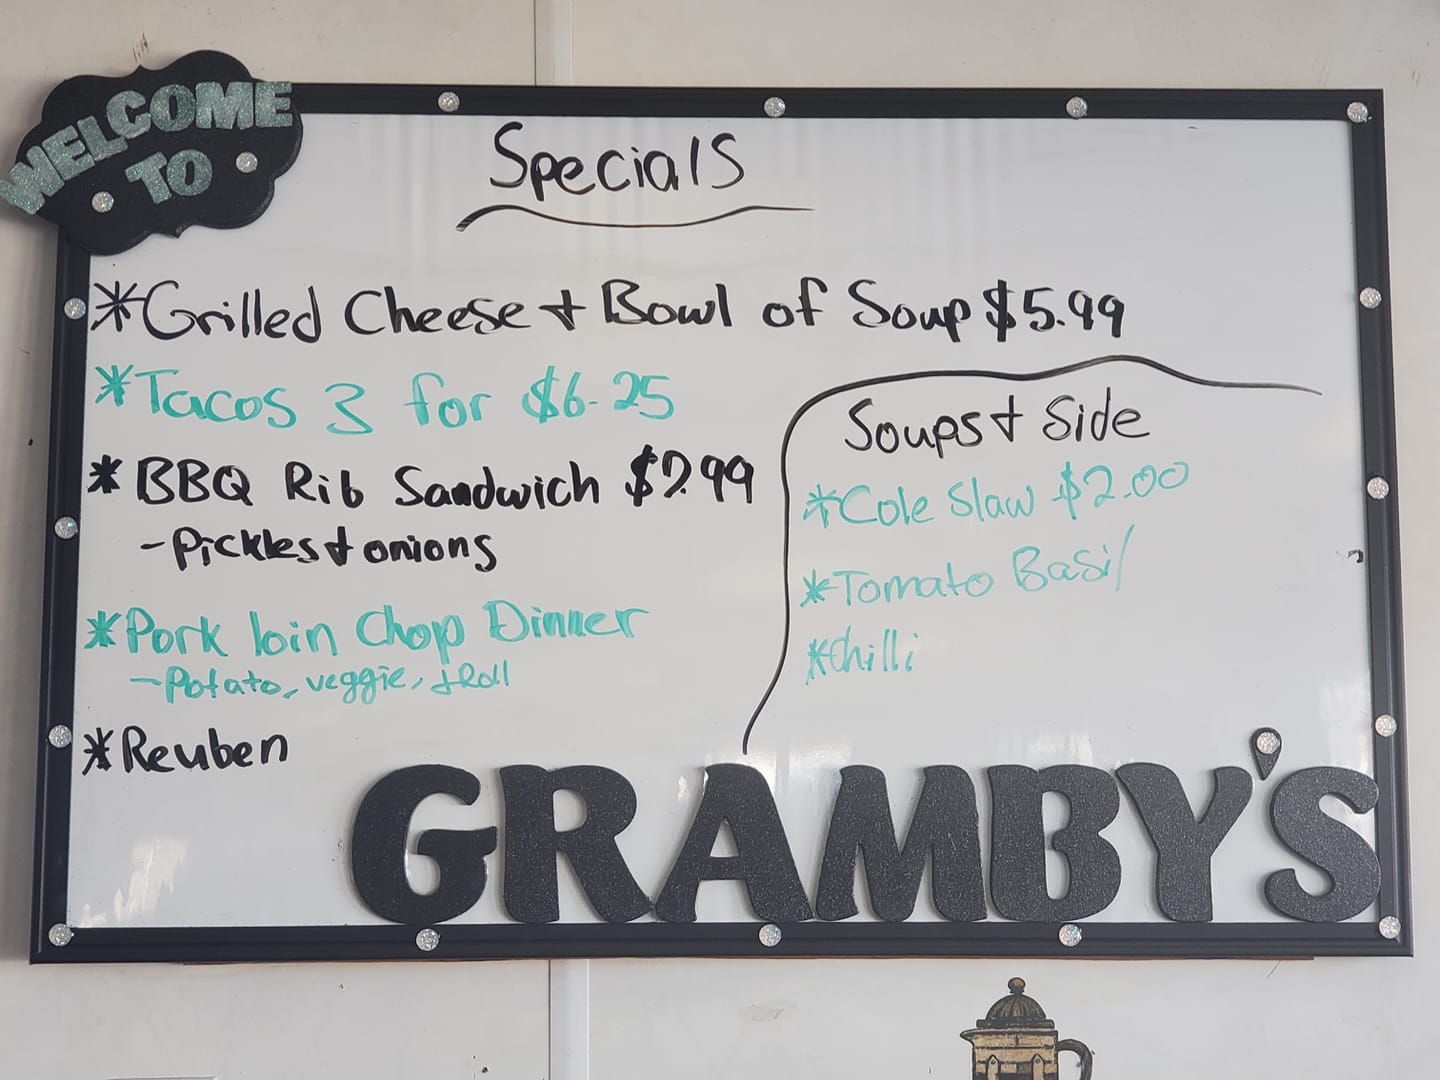 WELCOME
TO
Specials
*Grilled Cheese + Bowl of Soup $5.99
*Tacos 3 for $6.25
*BBQ Rib Sandwich $7.99
-Pickles + onions
*Pork loin Chop Dinner
-Potato, veggie, + Roll
*Reuben
Soups + Side
*Cole Slaw $2.00
*Tomato Basil
*Chilli
GRAMBY'S